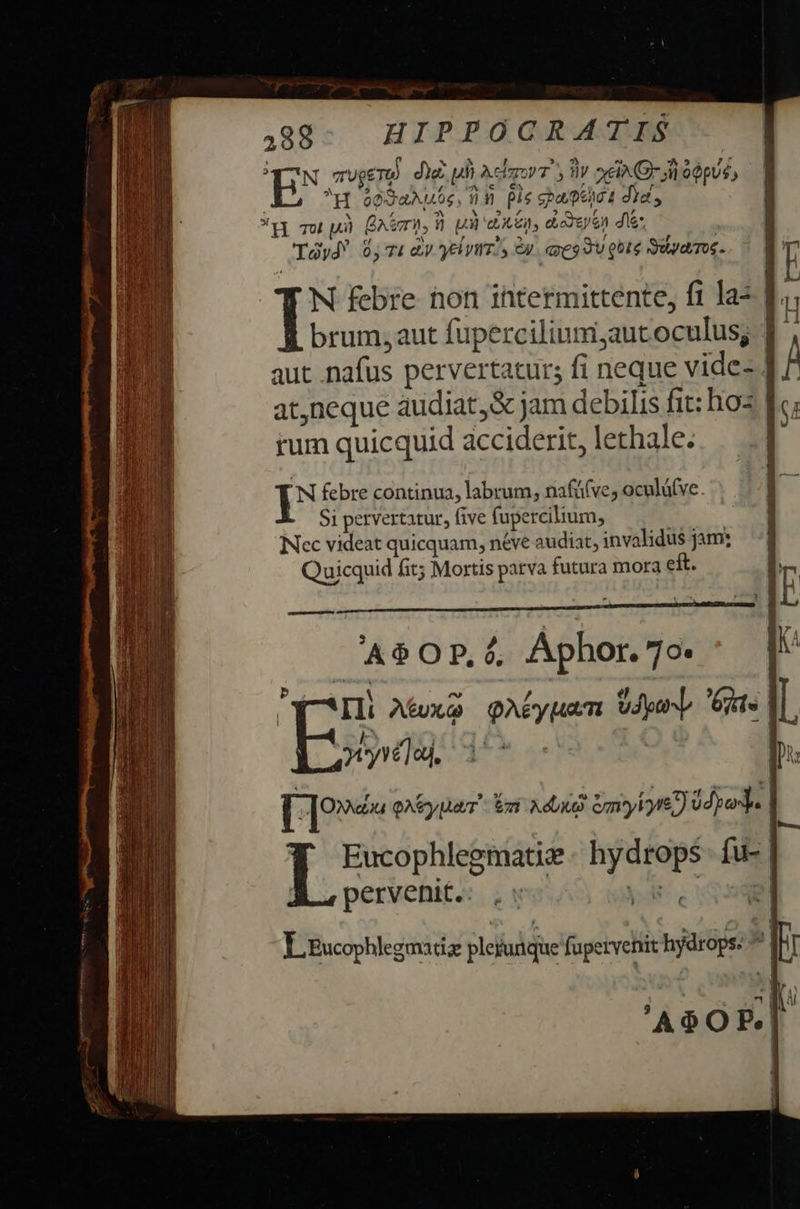 288 HIPPOCRATIS
ἘΝ πυρετῷ διὰ μὴ λείποντ', ἢν χεῖλος ἢ ὀφρύς,
Ἢ ὀφθαλμός, ἢ ἢ ῥὶς
Ἢ τοι μὴ βλέπῃ, ἢ μὴ ἀκέῃ, ἀσθενέῃ δέ·
Τῶνδ' ὅ, τι ἂν
IN febre non intermittente, si la-
brum, aut supercilium, aut oculus,
aut nasus pervertatur; si neque vide-
at, neque audiat, & jam debilis sit: ho-
rum quicquid acciderit, lethale.
IN febre continua, labrum, nasúsve, oculúsve
Si pervertatur, sive supercilium,
Nec videat quicquam, néve audiat, invalidus jam;
Quicquid sit; Mortis parva futura mora est.
ἈΦΟΡ. ό. Aphor. 70.
ἘΠὶ λευκῷ φλέγματι ὕδρωψ ἐπι-
γίγνεται.
ΠΟλλάκι φλέγματ' ἐπὶ λευκῷ ἐπιγίγνεται ὕδρωψ.
LEucophlegmatiæ hydrops su-
pervenit.
LEucophlegmatiæ plerunque supervenit hydrops.
ἈΦΟΡ.